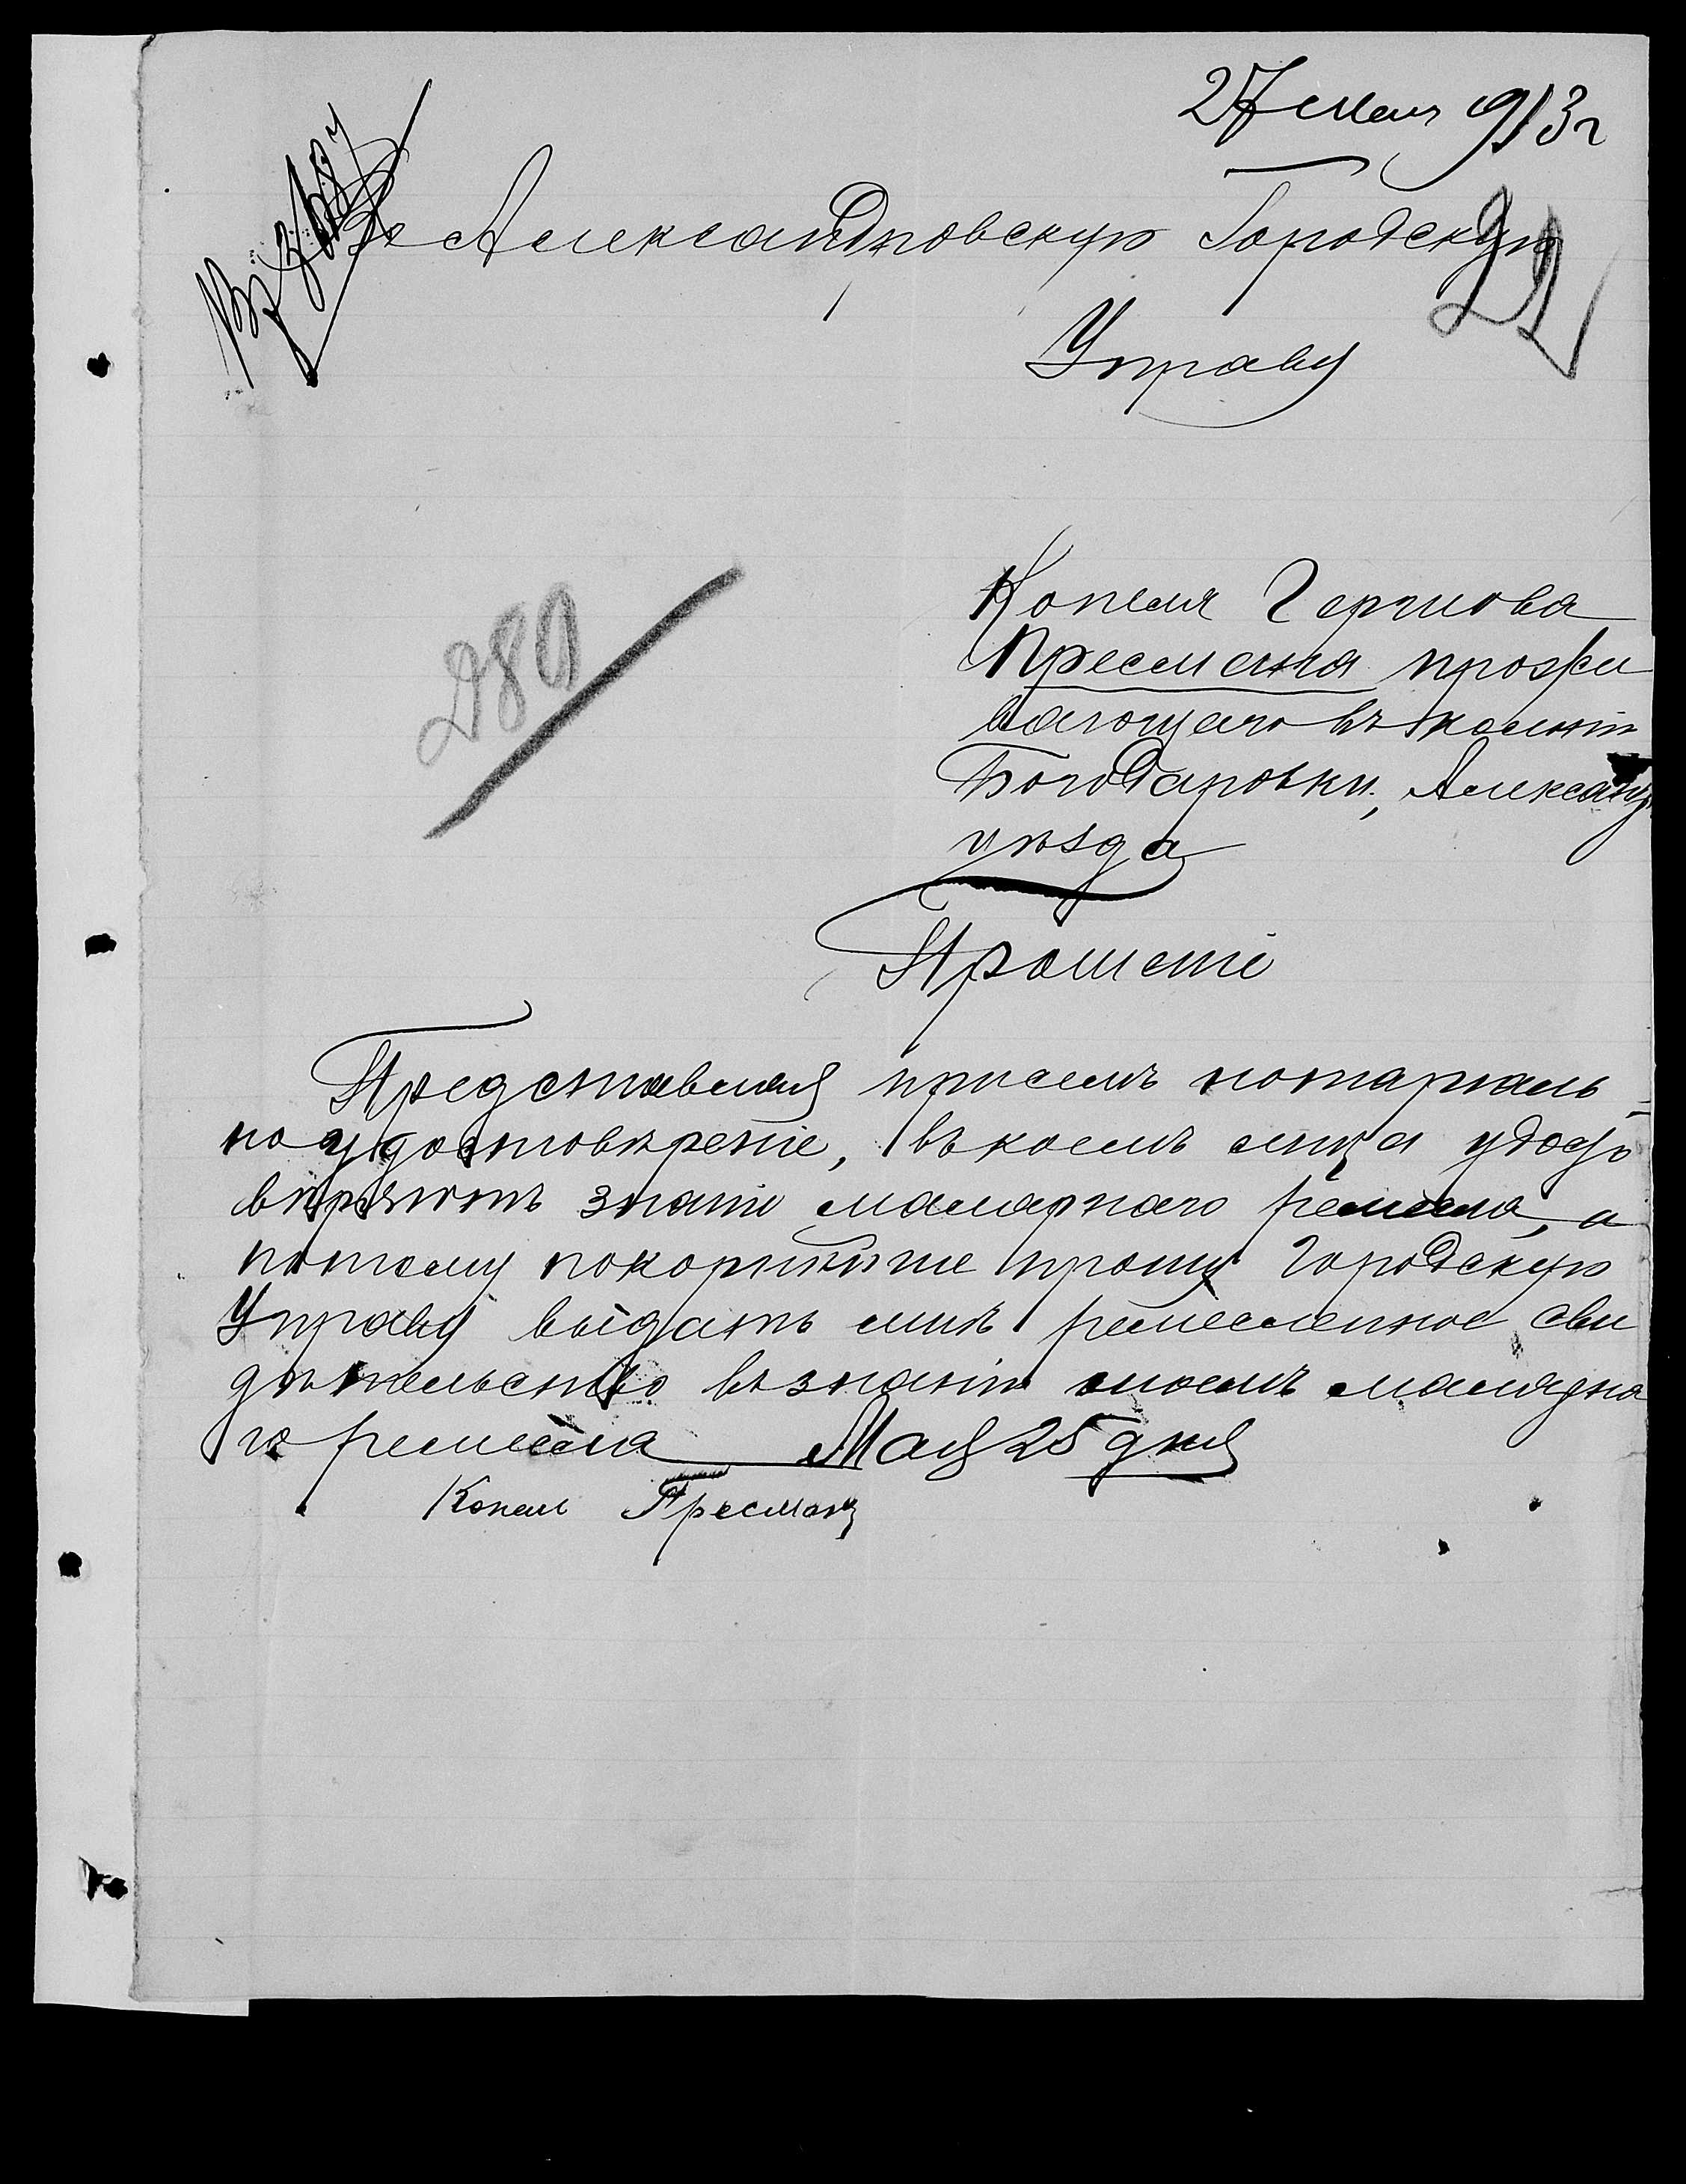 27 мая 913 г
Во Александровскую Городскую
22
Управу
Копеля Гершова
Пресмана прожи
вающаго въ колонiи
Богодаровки, Александ
уѣзда
280
Прошенiе
Представляя присемъ нотарiаль-
но удостовѣренiе, въ коемъ лица удосто
вѣряютъ знанiе малярнаго ремесла, а
потому покорнѣйше прошу Городскую
Управу выдать мнѣ ремесленное сви
дѣтельство въ знанiи моемъ малярна
го ремесла Мая 25 дня
Копель Пресман